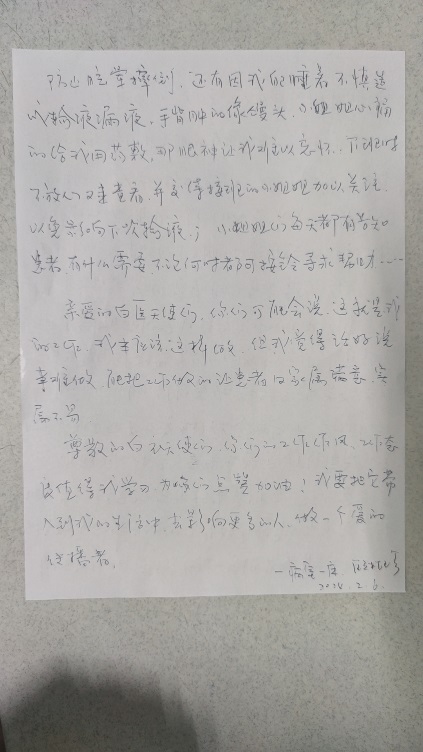 防止吃堂摔倒，还有因我的睡着不慎造
成输液漏液，手背肿的像馒头，小姐姐心痛
的给我用药敷，那眼神让我难以忘怀，下班时
不放心又来查看，并交待接班的小姐姐加以关注
以免影响下次输液；小姐姐们每天都有告知
患者有什么需要不论何时者可按铃寻求帮助……
亲爱的白医天使们，你们可能会说，这就是我
的工作，我本应该这样做，但我觉得话好说
事难做，能把工作做的让患者日家属满意，实
属不易
尊敬的白衣天使们，你们的工作作风、工作态
度值得我学习，为你们点赞加油！我要把它带
入到我的生活中，去影响更多的人，做一个爱的
传播者。
一病室一床
2.6.